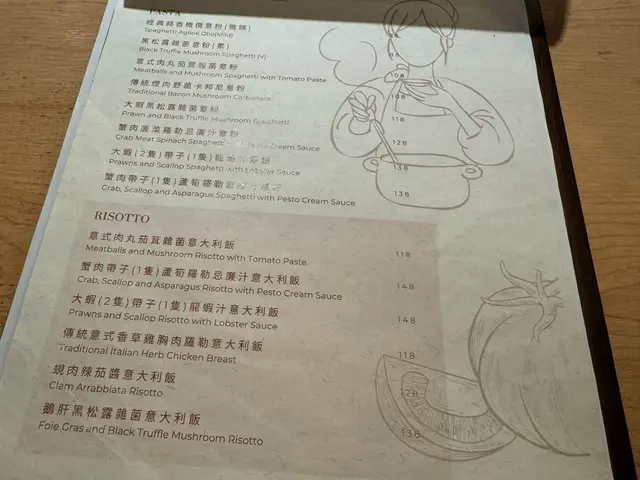 PASTA
經典蒜香橄欖意粉(微辣)
Spaghetti Aglioe Olio(Mild)
黑松露雜菌意粉(素)
Black Truffle Mushroom Spaghetti (V)
意式肉丸茄茸雜菌意粉
Meatballs and Mushroom Spaghetti with Tomato Paste
108
傳統煙肉野菌卡邦尼意粉
Traditional Bacon Mushroom Carbonara
大蝦黑松露雜菌意粉
Prawn and Black Truffle Mushroom Spaghetti
118
蟹肉菠菜羅勒忌廉汁意粉
Crab Meat Spinach Spaghetti Cream Sauce
128
大蝦(2隻)帶子(1隻)龍
Prawns and Scallop Spaghetti with Lobster Sauce
138
蟹肉帶子(1隻)蘆筍羅勒
Crab, Scallop and Asparagus Spaghetti with Pesto Cream Sauce
138
RISOTTO
意式肉丸茄茸雜菌意大利飯
Meatballs and Mushroom Risotto with Tomato Paste
118
蟹肉帶子(1隻)蘆筍羅勒忌廉汁意大利飯
Crab, Scallop and Asparagus Risotto with Pesto Cream Sauce
148
大蝦(2隻)帶子(1隻)龍蝦汁意大利飯
Prawns and Scallop Risotto with Lobster Sauce
148
傳統意式香草雞胸肉羅勒意大利飯
Traditional Italian Herb Chicken Breast
118
蜆肉辣茄醬意大利飯
Clam Arrabbiata Risotto
128
鵝肝黑松露雜菌意大利飯
Foie Gras and Black Truffle Mushroom Risotto
138